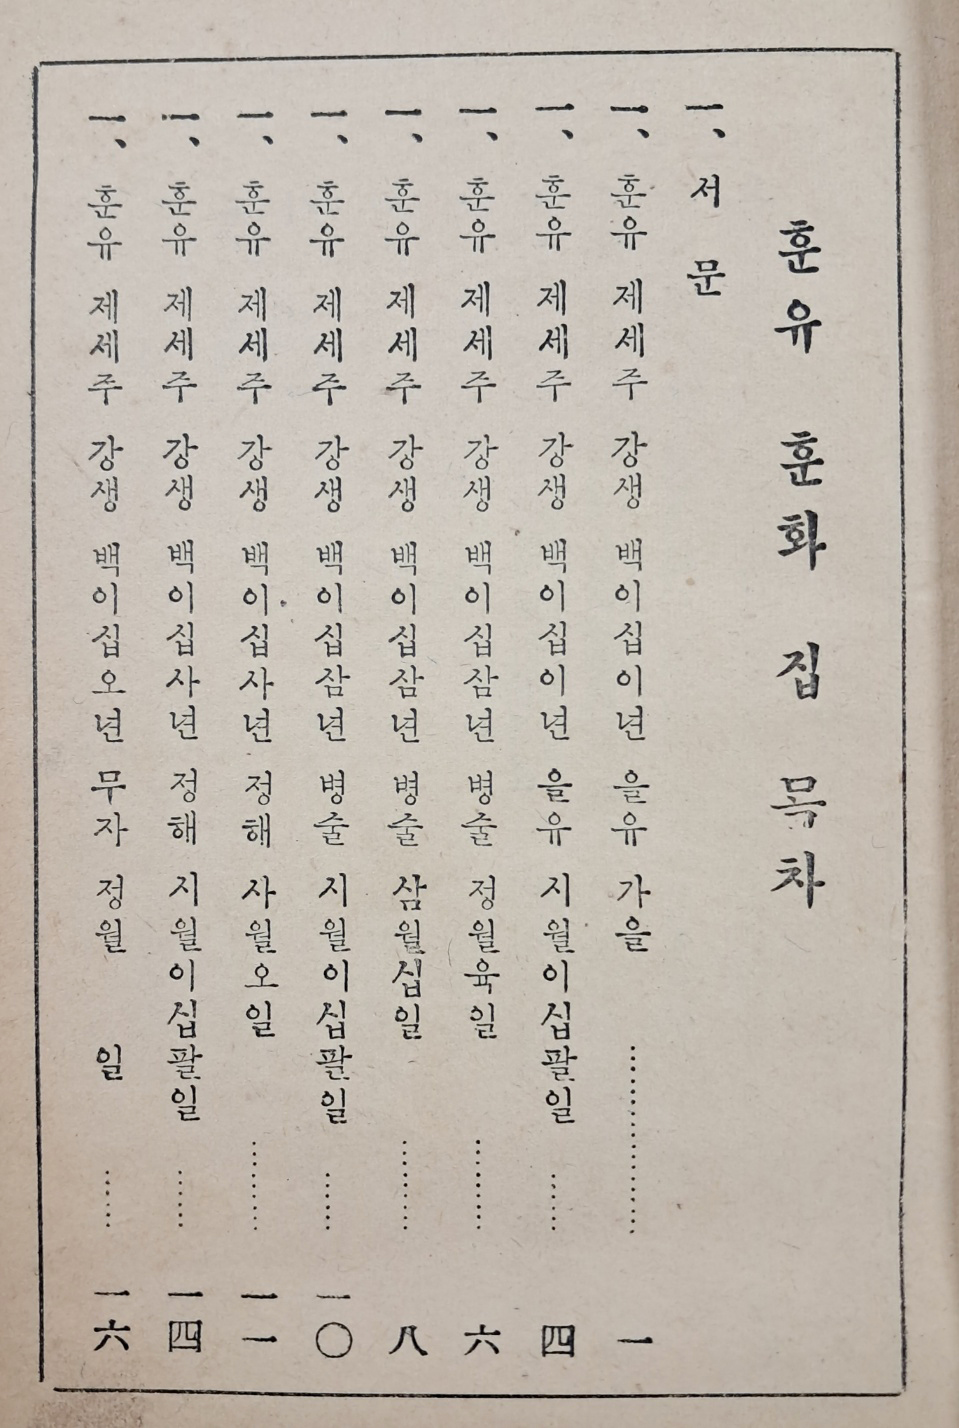 훈유 훈화 집 목차
一、 서 문
一、 훈유 제세주 강생 백이십이년 을유 가을 ………………… 一
一、 훈유 제세주 강생 백이십이년 을유 시월이십팔일 …… 四
一、 훈유 제세주 강생 백이십삼년 병술 정월육일 ……… 六
一、 훈유 제세주 강생 백이십삼년 병술 삼월십일 ……… 八
一、 훈유 제세주 강생 백이십삼년 병술 시월이십팔일 …… 一〇
一、 훈유 제세주 강생 백이십사년 정해 사월오일 ……… 一一
一、 훈유 제세주 강생 백이십사년 정해 시월이십팔일 …… 一四
一、 훈유 제세주 강생 백이십오년 무자 정월 일 …… 一六